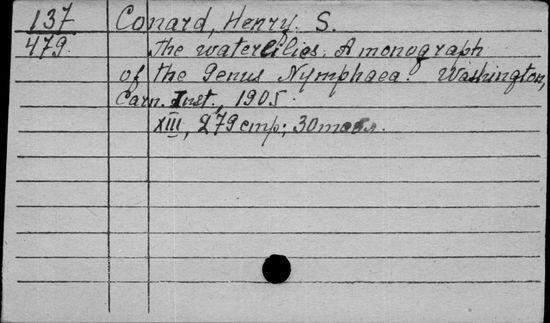 137 Conard, Henry S.
479. The waterlilies. A monograph
of the Genus Nymphaea. Washington,
Carn. Inst., 1905.
XIII, 279 стр; 30 табл.